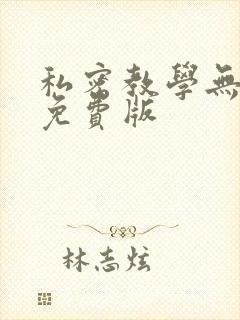 私密教學無
免費版
林志炫